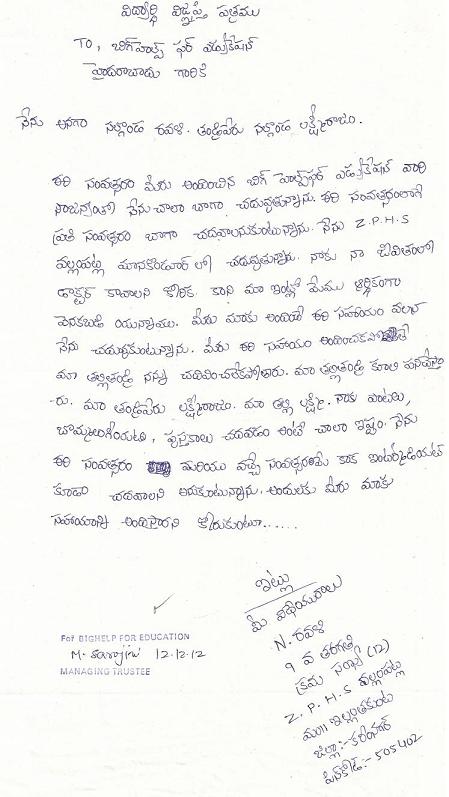 విద్యార్థి విజ్ఞప్తి పత్రము
TO, బిగ్‌హెల్ప్ ఫర్ ఎడ్యుకేషన్
హైదరాబాదు గారికి
నేను అనగా నల్గొండ రవళి. తండ్రిపేరు నల్గొండ లక్ష్మీరాజం.
ఈ సంవత్సరం మీరు అందించిన బిగ్ హెల్ప్‌ఫర్ ఎడ్యుకేషన్ వారి
నేను చాలా బాగా చదువుతున్నాను. ఈ సంవత్సరంలాగే
ప్రతి సంవత్సరం బాగా చదవాలనుకుంటున్నాను. నేను Z.P.H.S
మానకొండూర్ లో చదువుతున్నాను. నాకు నా జీవితంలో
డాక్టర్ కావాలని కోరిక. కాని మా ఇంట్లో మేము ఆర్థికంగా
వెనకబడి యున్నాము. మీరు మాకు అందించే ఈ సహాయం వలన
నేను చదువుకుంటున్నాను. మీరు ఈ సహాయం అందించకపోతే
మా తల్లితండ్రి నన్ను చదివించలేకపోతారు. మా తల్లితండ్రి కూలి పనిచేస్తా
-రు. మా తండ్రిపేరు లక్ష్మీరాజం. మా తల్లి లక్ష్మి. నాకు ఆటలు,
బొమ్మలుగీయుట, పుస్తకాలు చదవడం అంటే చాలా ఇష్టం. నేను
ఈ సంవత్సరం మరియు వచ్చే సంవత్సరమే కాక ఇంటర్మీడియట్
కూడా చదవాలని అనుకుంటున్నాను. అందులకు మీరు మాకు
సహాయాన్ని అందిస్తారని కోరుకుంటూ......
ఇట్లు
మీ విధేయురాలు
N. రవళి
9 వ తరగతి
క్రమ సంఖ్య (12)
Z.P.H.S వల్లంపట్ల
మం॥ ఇల్లంతకుంట
జిల్లా:- కరీంనగర్
పిన్‌కోడ్:- 505402
For BIGHELP FOR EDUCATION
M. Sarojini 12.12.12
MANAGING TRUSTEE